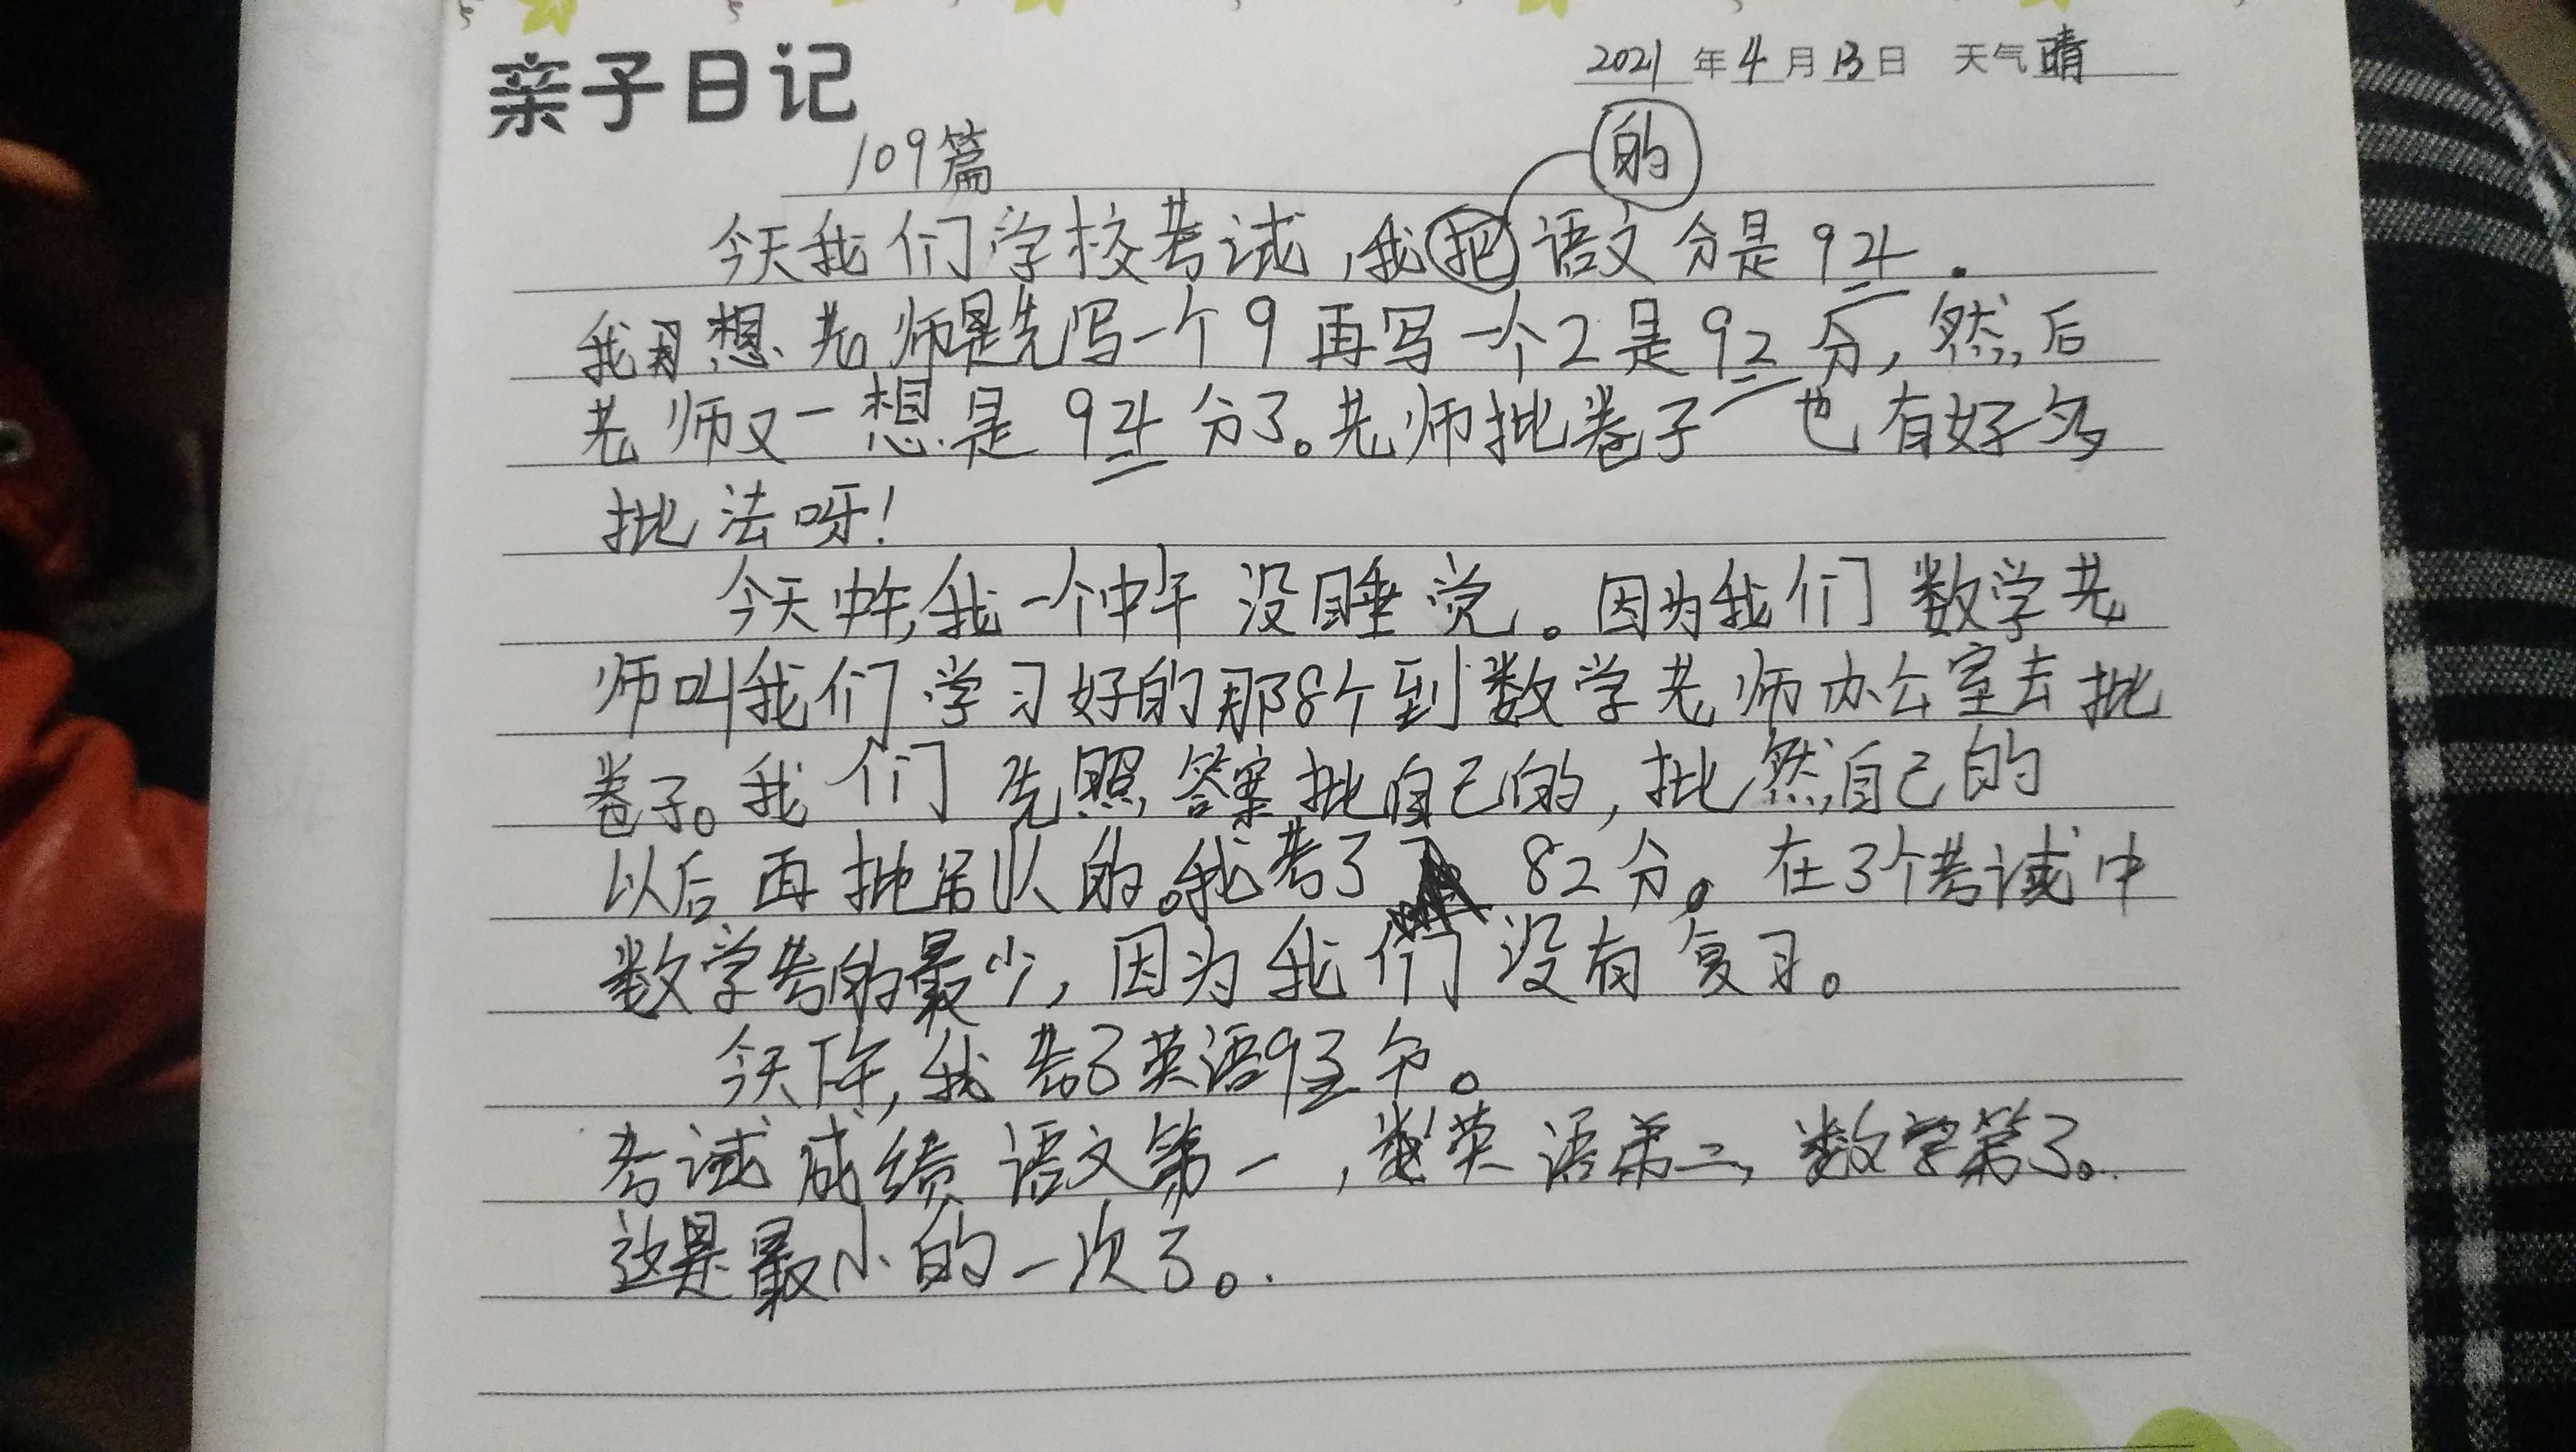 亲子日记
2021年4月13日 天气晴
109篇
的
今天我们学校考试,我把语文分是94.
我想老师是先写一个9再写一个2是92分,然后
老师又一想是94分了。老师批卷子也有好多
批法呀!
今天中午,我一个中午没睡觉。因为我们数学老
师叫我们学习好的那8个到数学老师办公室去批
卷子。我们先照答案批自己的,批然自己的
以后再批别人的。我考了82分。在3个考试中
数学考的最少,因为我们没有复习。
今天下午,我考了英语93分。
考试成绩语文第一,英语第二,数学第了。
这是最小的一次了。